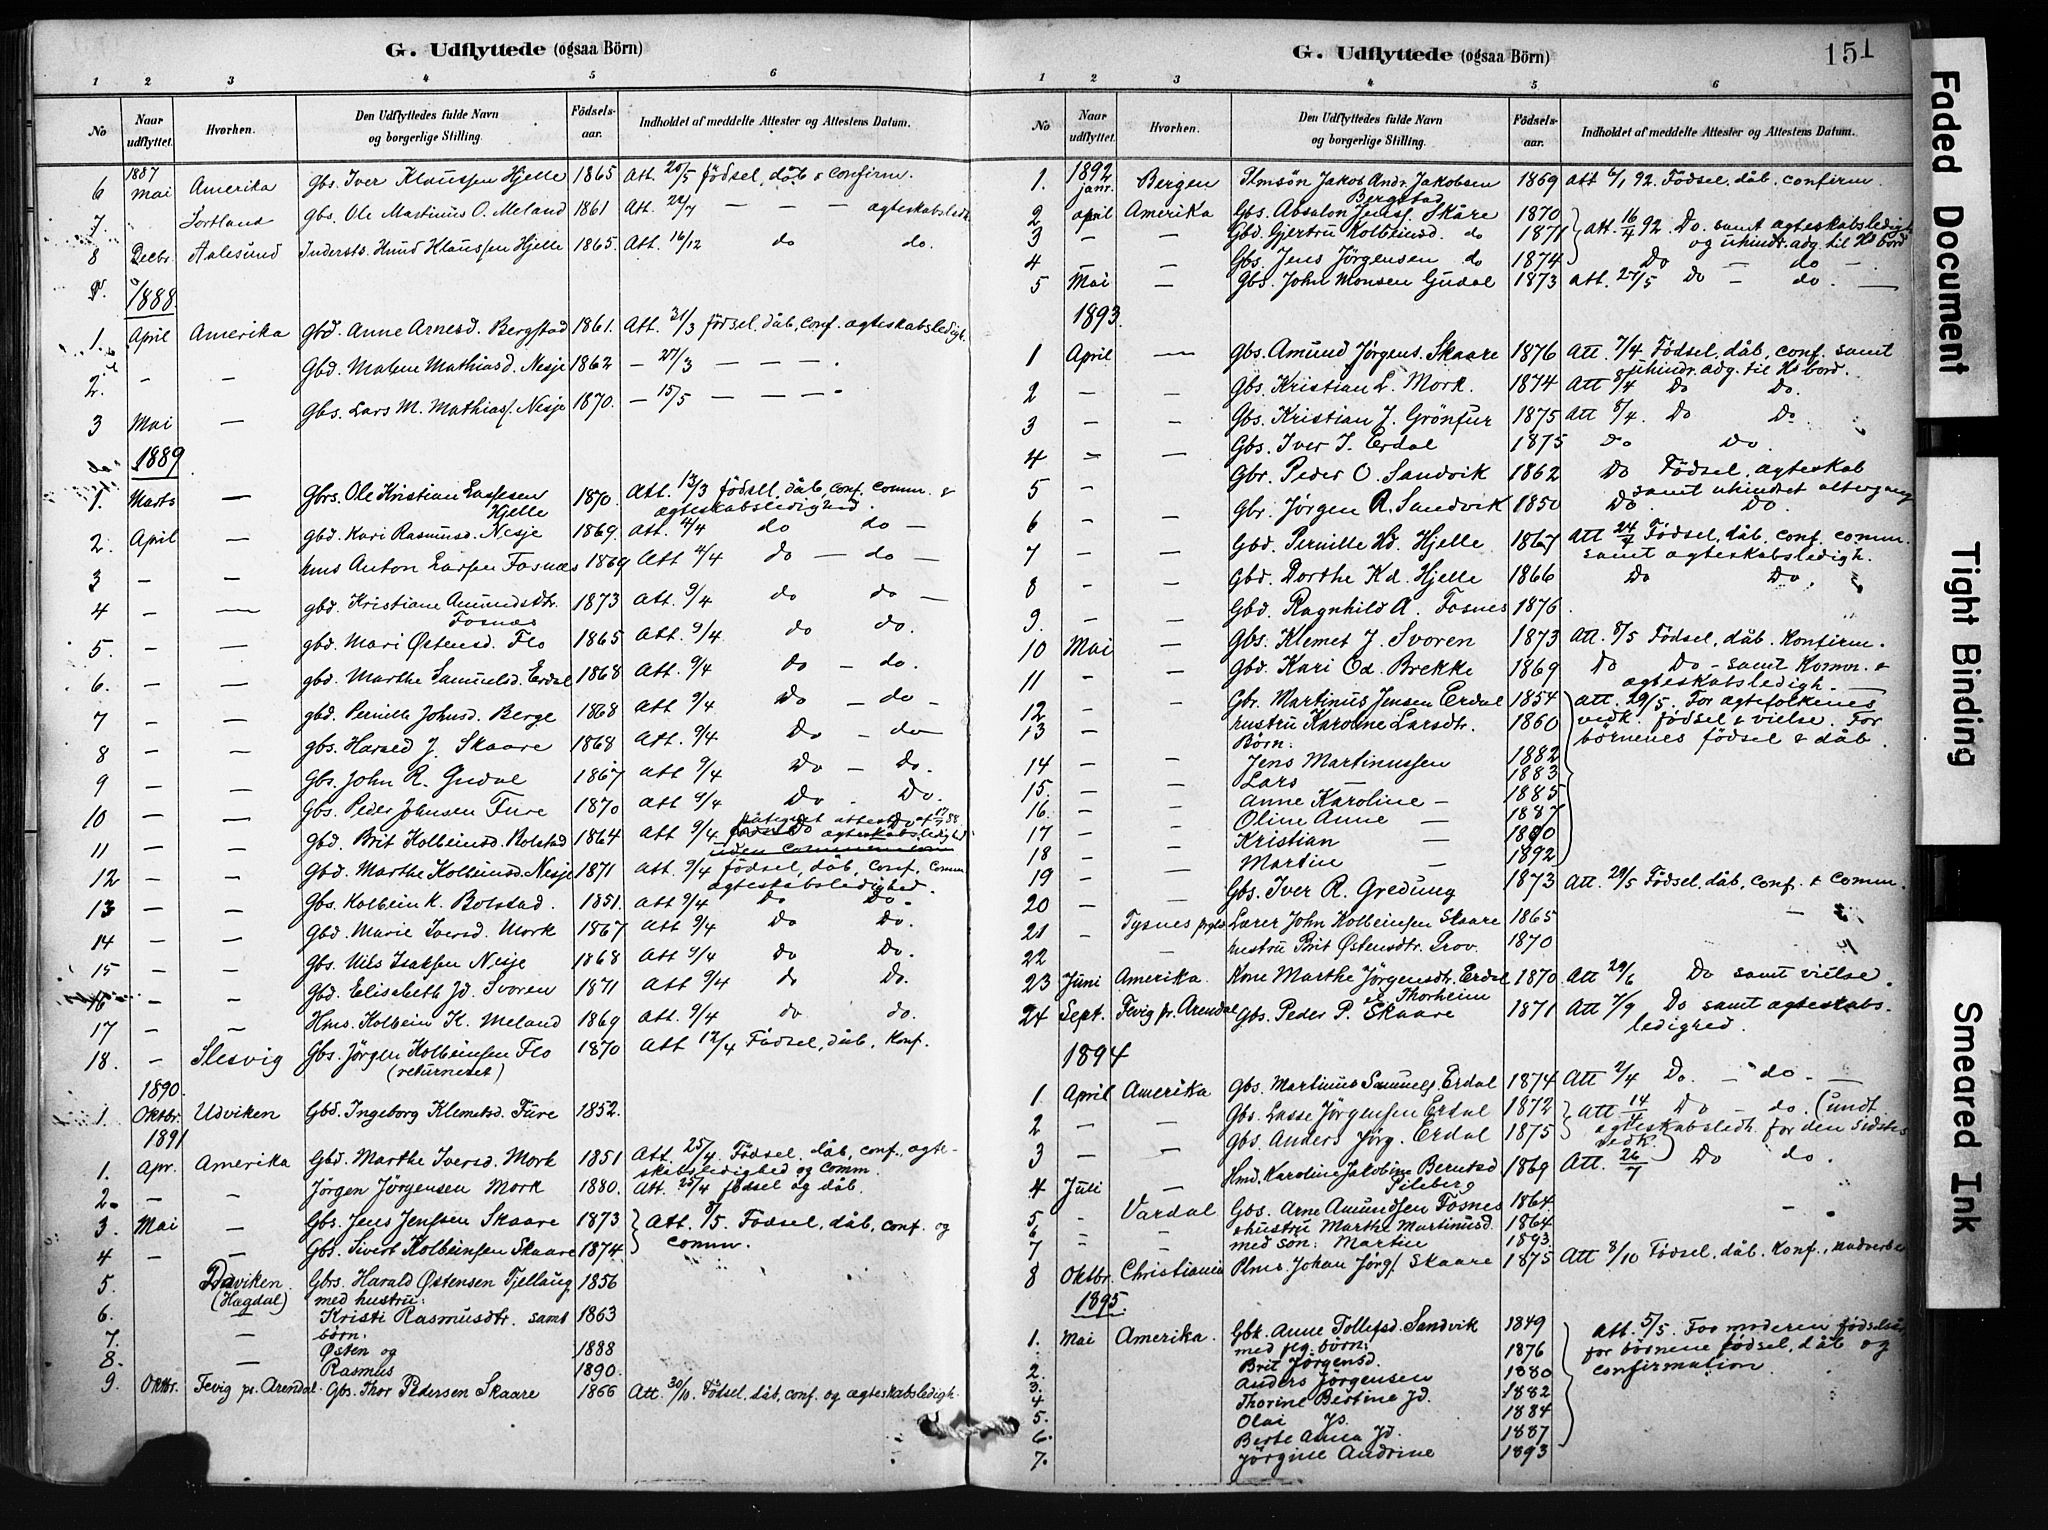 G. Udflyttede (ogsaa Börn)
1 2 3 4 5 6
No Naar udflyttet. Hvorhen. Den Udflyttedes fulde Navn og borgerlige Stilling. Födsels-aar. Indholdet af meddelte Attester og Attestens Datum.
1887
6 Mai Amerika Gbs. Iver Klaussen Hjelle 1865 Att. 20/5 födsel, dåb & confirm.
7. Sortland Gbs. Ole Martinus O. Meland 1861 Att. 22/7 — — — agteskabsledh
8 Decbr. Aalesund Inderste Knud Klaussen Hjelle 1865. Att. 16/12 do do.
1888.
1. April Amerika Gbd. Anne Arnesd. Bergstad 1861. Att. 31/3 födsel, dåb, conf. agteskabsledigh.
2. - - Gbd. Malene Mathiasd. Nesje 1862 — 27/3 — — —
3 Mai — Gbs. Lars M. Mathias. Nesje 1870. — 15/5 — — —
1889
1. Marts — Gbrs. Ole Kristian Lassesen Hjelle 1870. Att. 13/3 födsel, dåb, conf. comm. & agteskabsledighed.
2. April — gbd. Kari Rasmusd. Nesje 1869. att. 4/4 do do —
3 - - hms Anton Larsen Fosnæs 1869 Att 4/4 do — do —
4 - — gbd. Kristiane Amundsdtr. Fosnæs 1873 Att. 9/4 do do —
5. - — gbd. Mari Østensd. Flo 1865 Att. 9/4 do do.
6. - — gbd. Marthe Samuelsd. Erdal 1868 Att. 9/4 do — do.
7 - — gbd. Pernille Johnsd. Berge 1868 Att 9/4 do — do -
8 - — gbs. Harald J. Skaare 1868 Att. 9/4 Do — do
9 - — Gbs. John R. Gudal 1867 Att 9/4 Do — Do.
10 - — Gbs. Peder Johnsen Fure 1870 Att 9/4 Do - Do.
11 - — Gbd. Brit Kolbeinsd. Bolstad 1864 Att 9/4 agteskabsledighed uden communion
12 - — Gbd. Marthe Kolbeinsd. Nesje 1871 Att. 9/4 födsel, dåb, conf. comm agteskabsledighed.
13 - — Gbs. Kolbein K. Bolstad. 1851. Att 9/4 Do Do.
14 - — Gbd. Marie Iversd. Mork 1867 Att 9/4 Do Do.
15 - - Gbs. Nils Isaksen Nesje 1868 Att 9/4 do Do.
16 - - Gbd. Elisabeth Jd. Svoren 1871 Att 9/4 do Do.
17 - - Hms. Kolbein K. Meland 1869 Att. 9/4 do do.
18. - Slesvig Gbs. Jörgen Kolbeinsen Flo (returneret) 1870 Att 12/4 Födsel, dåb, Konf.
1890.
1. Oktbr. Udviken Gbd. Ingeborg Klemetsd. Fure 1852.
1891
1. Apr. Amerika Gbd. Marthe Iversd. Mork 1851 Att. 25/4 Födsel, dåb, conf., agteskabsledighed og comm.
2. - - Jörgen Jörgensen Mork 1880. Att. 25/4 födsel og dåb.
3. Mai — Gbs. Jens Jenssen Skaare 1873 } Att. 8/5. Födsel, dåb, conf. og comm.
4 - — Gbs. Sivert Kolbeinsen Skaare 1874
5. Daviken (Hægdal) Gbrs. Harald Østensen Tjellaug 1856
med hustru:
6. — Kristi Rasmusdtr. samt 1863
börn:
7. — Østen og 1888
8. — Rasmus 1890.
9 Oktbr. Fevig pr. Arendal. Gbs. Thor Pedersen Skaare 1866 Att. 30/10. Födsel, dåb, conf. og agteskabsledigh.
G. Udflyttede (ogsaa Börn) 151
1 2 3 4 5 6
No Naar udflyttet. Hvorhen. Den Udflyttedes fulde Navn og borgerlige Stilling. Födsels-aar. Indholdet af meddelte Attester og Attestens Datum.
1892
1. janr. Bergen Plmsön Jakob Andr. Jakobsen Bergstad 1869 Att 6/1 92. Födsel, dåb, confirm.
2 april Amerika Gbs. Absalon Jens. Skåre 1870 } att. 16/4 92. Do. samt agteskabsledigh. og uhindr. adg. til Hs bord
3 — — Gbd. Gjertru Kolbeinsd. do 1871
4 — — Gbs. Jens Jörgensen do 1874 Do — do —
5 Mai — Gbs. John Monsen Gudal 1873 att. 27/5 Do — do. —
1893.
1 April — Gbs. Amund Jörgens. Skaare 1876 Att. 7/4 Födsel, dåb, conf. samt uhindr. adg. til Hs bord.
2 - - Gbs. Kristian L. Mork. 1874 Att 8/4 Do Do.
3 - - Gbs. Kristian J. Grönfur 1875 Att 8/4 Do Do
4 - - Gbs. Iver I. Erdal 1875 Do Do.
5 - - Gbr. Peder O. Sandvik 1862 Do Födsel, agteskab samt uhindret altergang
6 - - Gbr. Jörgen R. Sandvik 1850 Do. Do.
7 - - Gbd. Pernille Kd. Hjelle 1867 Att 24/4 Födsel, dåb, conf. comm. samt agteskabsledigh.
8 - - Gbd. Dorthe Kd. Hjelle 1866 Do Do.
9. - - Gbd. Ragnhild A. Fosnes 1876.
10 Mai — Gbs. Klemet J. Svoren 1873 Att. 8/5 Födsel, dåb. Konfirm.
11 - — Gbd. Kari Od. Brekke 1869 Do Do - samt Komm. & agteskabsledigh. —
12 - - Gbr. Martinus Jensen Erdal 1854 } att. 29/5. For agtefolkenes vedk. födsel & vielse. For börnenes födsel & dåb.
13 - - hustru Karoline Larsdtr. 1860
Börn:
14 - - Jens Martinussen 1882
15. - - Lars — 1883
16. - - Anne Karoline — 1885
17 - - Oline Anne — 1887
18 - - Kristian — 1890
19 - - Martin — 1892
20 - - Gbs. Iver R. Gredung 1873 Att. 29/5 Födsel, dåb, conf. & comm.
21 - Tysnes prgld Lærer John Kolbeinsen Skaare 1865
22 - Hustru Brit Østensdtr. Prov. 1870
23 Juni Amerika. Kone Marthe Jörgensdtr. Erdal el Thorheim 1870. Att 29/6 Do samt vielse.
24 Sept. Fevig pr. Arendal Gbs. Peder P. Skaare 1871 Att 7/9 Do samt agteskabsledighed.
1894
1 April Amerika Gbs. Martinus Samuels. Erdal 1874 Att 2/4 Do. — do. —
2 - - Gbs. Lasse Jörgensen Erdal 1872 } Att 14/4 Do - do. (undt agteskabsledh. for den Sidstes vedk.)
3 - - Gbs. Anders Jörg. Erdal 1875
4 Juli — Hmd. Karoline Jakobine Berntsd Pileberg 1869 Att. 26/7 Do do.
5 - Vardal Gbs. Arne Amundsen Fosnes 1864.
6 - - & hustru Marthe Martinusd. 1864
7 - - med sön: Martin 1893.
8 Oktbr. Christiania Plms. Johan Jörg. Skaare 1875 Att 8/10 Födsel, dåb. Konf., 
1895.
1. Mai Amerika. Gbk. Anne Tollefsd. Sandvik 1849 } att. 5/5. For moderen födsels for börnene födsel, dåb og confirmation
med flg. börn:
2. Brit Jörgensd. 1876
3. Anders Jörgensen 1880
4 Thorine Bertine Jd. 1882
5. Olai Js. 1884
6. Berte Anna Jd. 1887
7. Jörgine Andrine 1893
Faded Document
Tight Binding
Smeared Ink